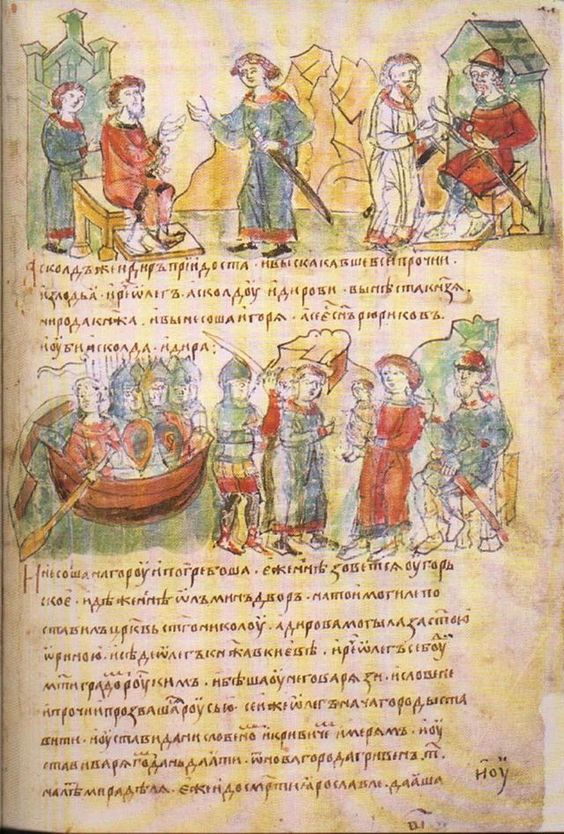 Асколдъ же и диръ прїидоста . и выскакавше вси прочии
из лодьа . и рⷱе ѡлегъ асколдоу и дирови . вы нѣста кнѧзѧ
ни рода кнѧжа . и вынесоша игорѧ . а се єⷭ снъ рюриковъ
и оуби асколда и дира :
И несоша на гороу и погребоша . еже ннѣ зоветсѧ оугорь
ское . идѣже ннѣ ѡлъминъ дворъ . на тои могиле по
ставилъ црквь стго николоу . а дирова могыла за стою
ѡриною . и сѣде ѡлегъ кнѧжа в киевѣ . и рⷱе ѡлегъ се боудⷤи
мти градоⷨ роускимъ . и бѣша оу него варѧзи . и словене
и прочии прозвашасѧ роусью . сеи же ѡлегъ нача городы ста
вити . и оустави дани словеноⷨ и кривичеⷨ и мерѧмъ . и оу
стави варѧгоⷨ дань даѧти . ѿ новагорода гривенъ т҃ .
на лѣⷮ мира дѣлѧ . еже и до смрти ꙗрославле . даꙗша
и оу